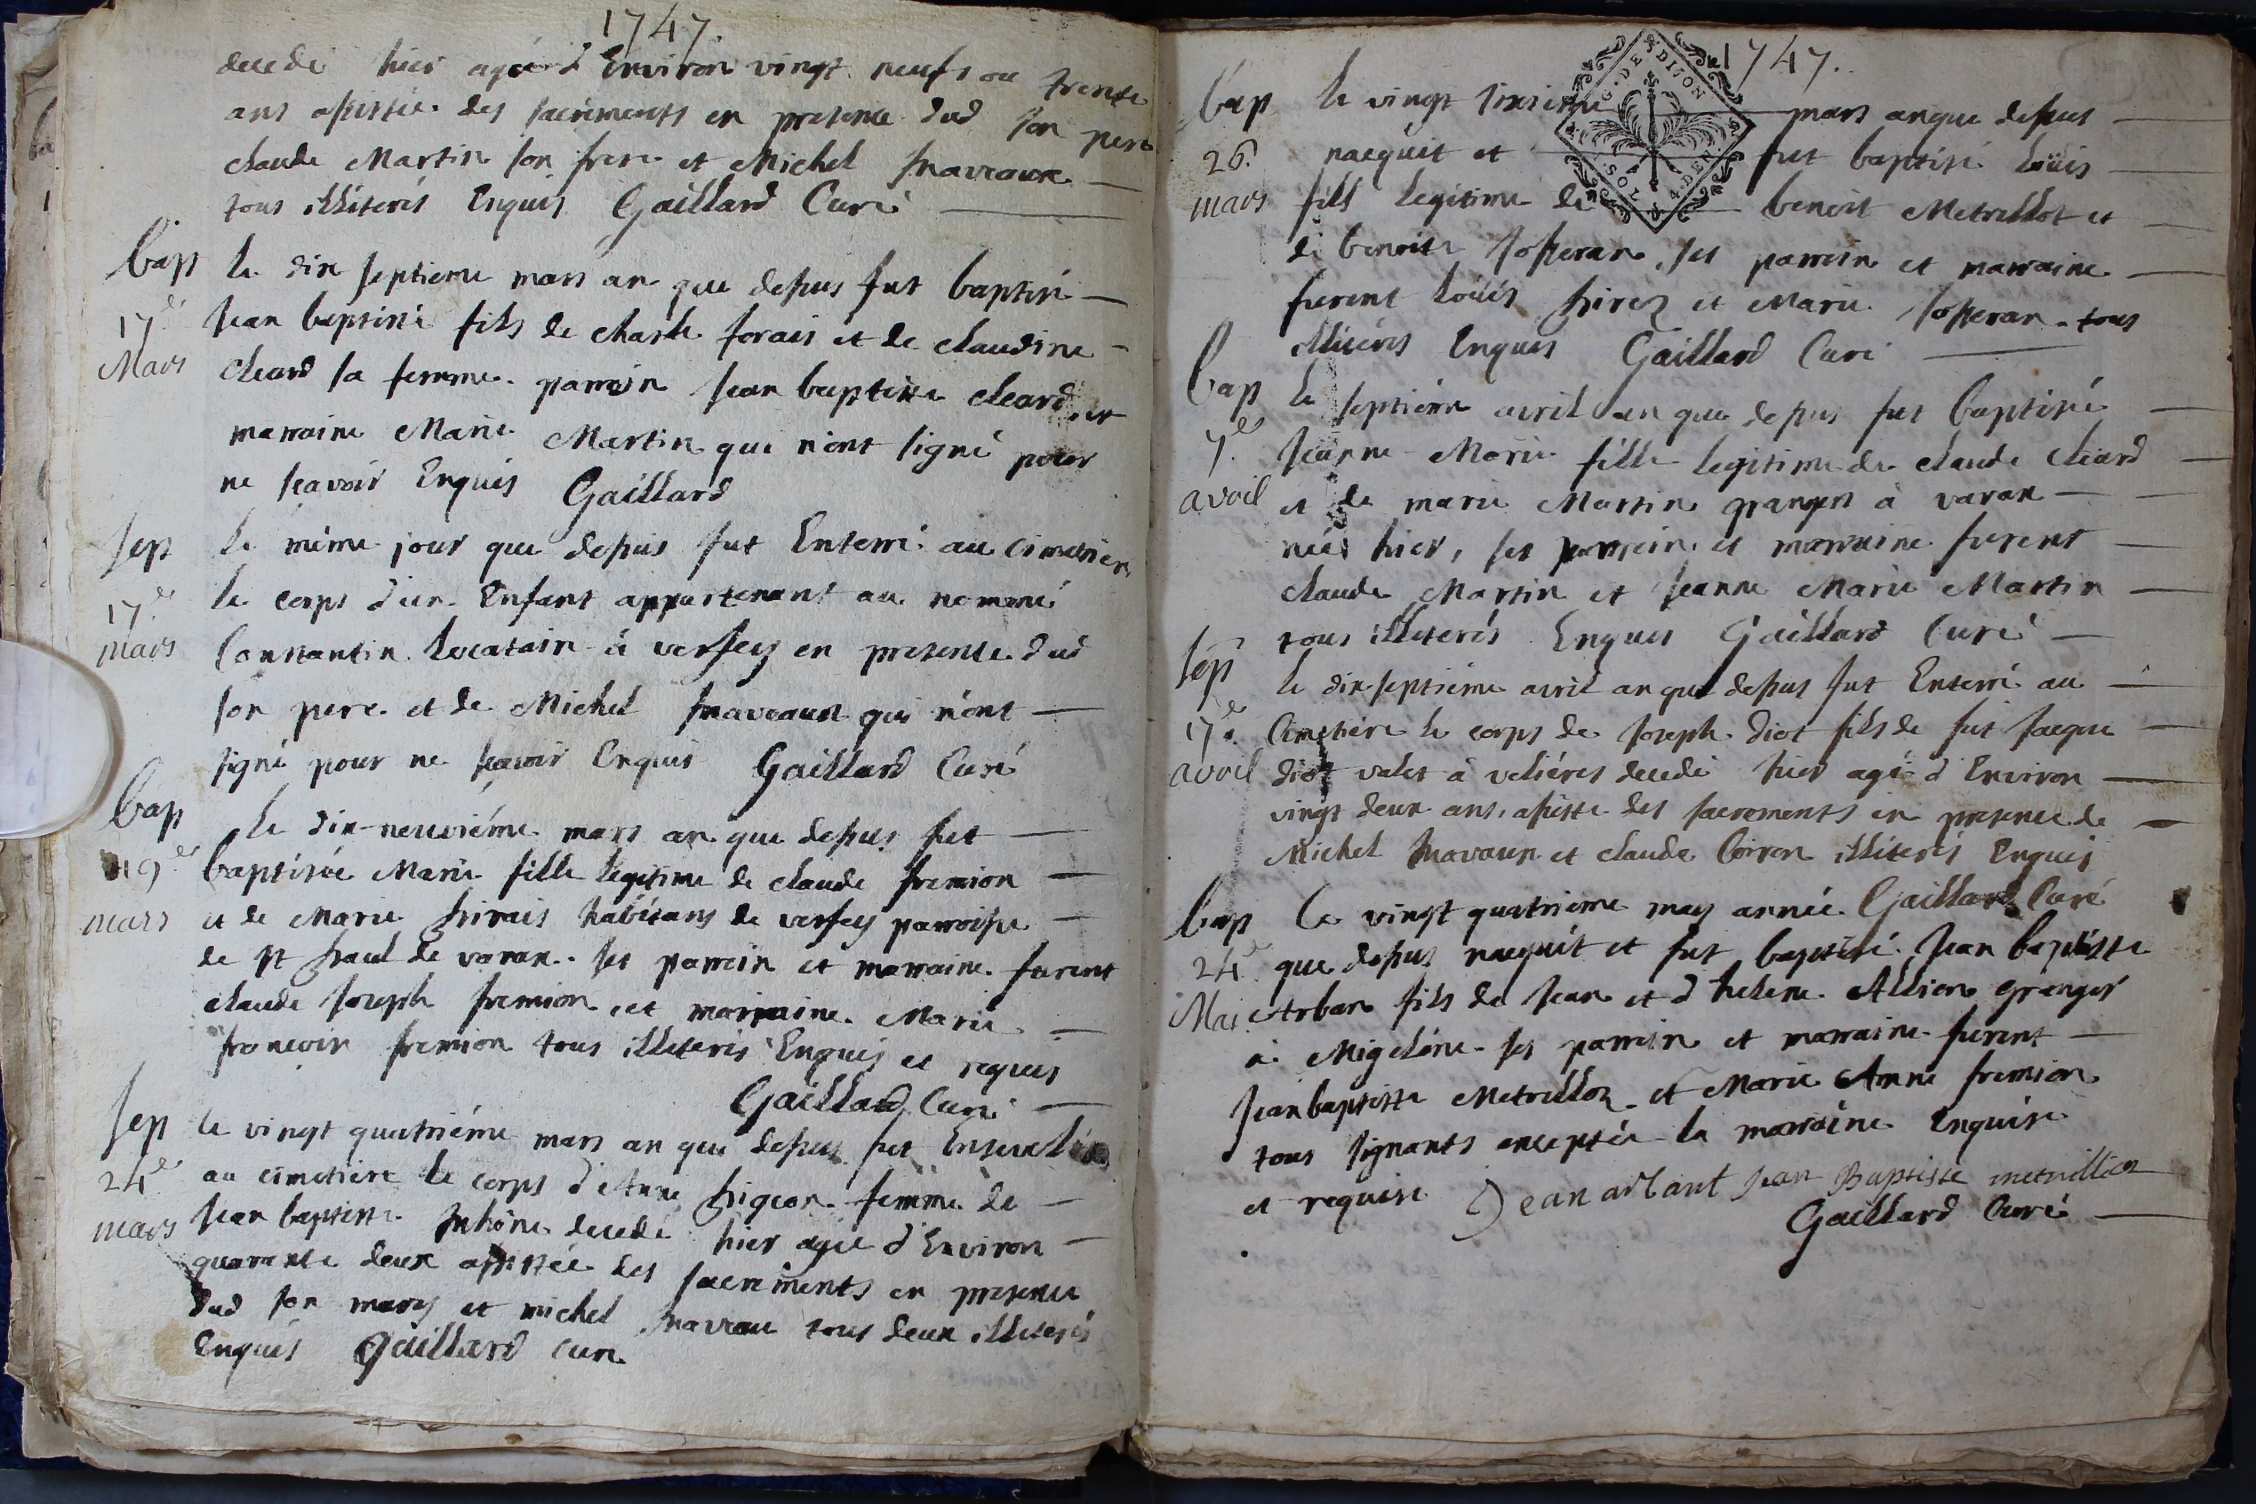 1747.
decedé hier agée d Environ vingt neufs ou trente
ans assistée des sacréments en presence dud son pere
claude Martin son frere et Michel
tous illiterés Enquis Gaillard Curé
bap
17e
Mars
le dix septieme mars an que dessus fut baptisé
Jean baptiste fils de charle forais et de claudine
cleard sa femme. parrein Jean baptiste cleard et
marraine Marie Martin qui n'ont signé pour
ne scavoir Enquis Gaillard
sep
17e
mars
le même jour que dessus fut Enterré au cimetiere
le corps d'un Enfant appartenant au nommé
Constantin Locatair à versey en presence dud
son pere et de Michel qui n'ont
signé pour ne scavoir Enquis Gaillard Curé
bap
19e
mars
le dix-neuviéme mars an que dessus fut
baptisée Marie fille legitime de claude fremion
et de Marie pirais habitans de versey parroisse
de st paul de varax. ses parrein et marraine furent
claude Joseph fremion et marraine Marie
francoise fremion tous illiterés Enquis et requis
Gaillard Curé
sep
24e
mars
le vingt quatriéme mars an que dessus fut Ensevelie
au cimetiere le corps d'Anne pigeon femme de
Jean baptiste decedé hier agée d'Environ
quarante deux assistée des sacrements en presence
dud son mary et michel tous deux illiterés
Enquis Gaillard curé
1747.
G. DE DIJON
SOL 4. DEN.
bap
26e
mars
le vingt sixsieme mars an que dessus
nacquit et fut baptisé Loüis
fils legitime de benoit Metrillot et
de benoite Josseran, ses parrein et marraine
furent Loüis pirez et Marie Josseran tous
illiterés Enquis Gaillard Curé
bap
7e
avril
le septiéme avril an que dessus fut baptisé
Jeanne Marie fille legitime de claude cleard
et de marie Martin grangers à varax
née hier, ses parrein et marraine furent
claude Martin et Jeanne Marie Martin
tous illiterés Enquis Gaillard Curé
sép
17e
avril
le dix-septiéme avril an que dessus fut Enterré au
Cimetiere le corps de Joseph diot fils de fut Jacque
diot valet à veliéres decedé hier agé d'Environ
vingt deux ans, assisté des sacrements en presence de
Michel et claude Coiron illiterés Enquis
Gaillard Curé
bap
24e
Mai
Le vingt quatrieme may année
que dessus nacquit et fut baptisé Jean baptiste
Arban fils de Jean et d'helene Allion granger
à Migeléne. ses parrein et marraine furent
Jean baptiste Metrilloz et Marie Anne fremion
tous signants exceptée la marraine Enquise
et requise Jean arbant Jean Baptiste metrillion
Gaillard Curé